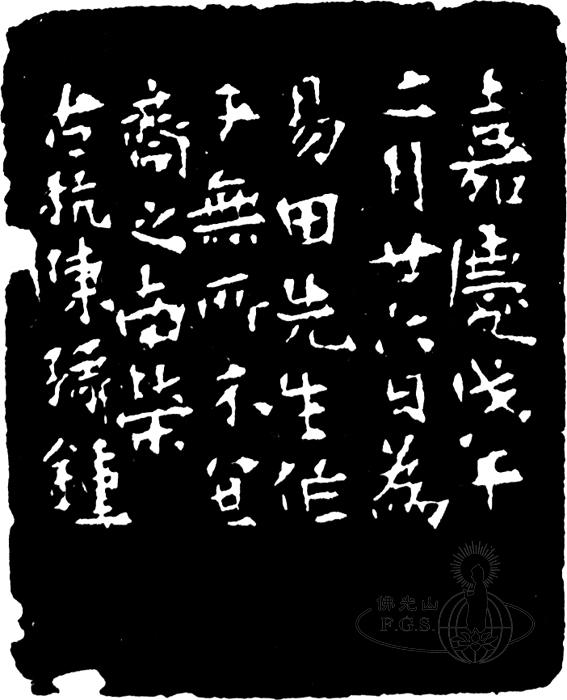 嘉慶戊午
二月廿六日為
易田先生作
于無所不
齋之南榮
古杭陳豫鍾
佛光山
F.G.S.